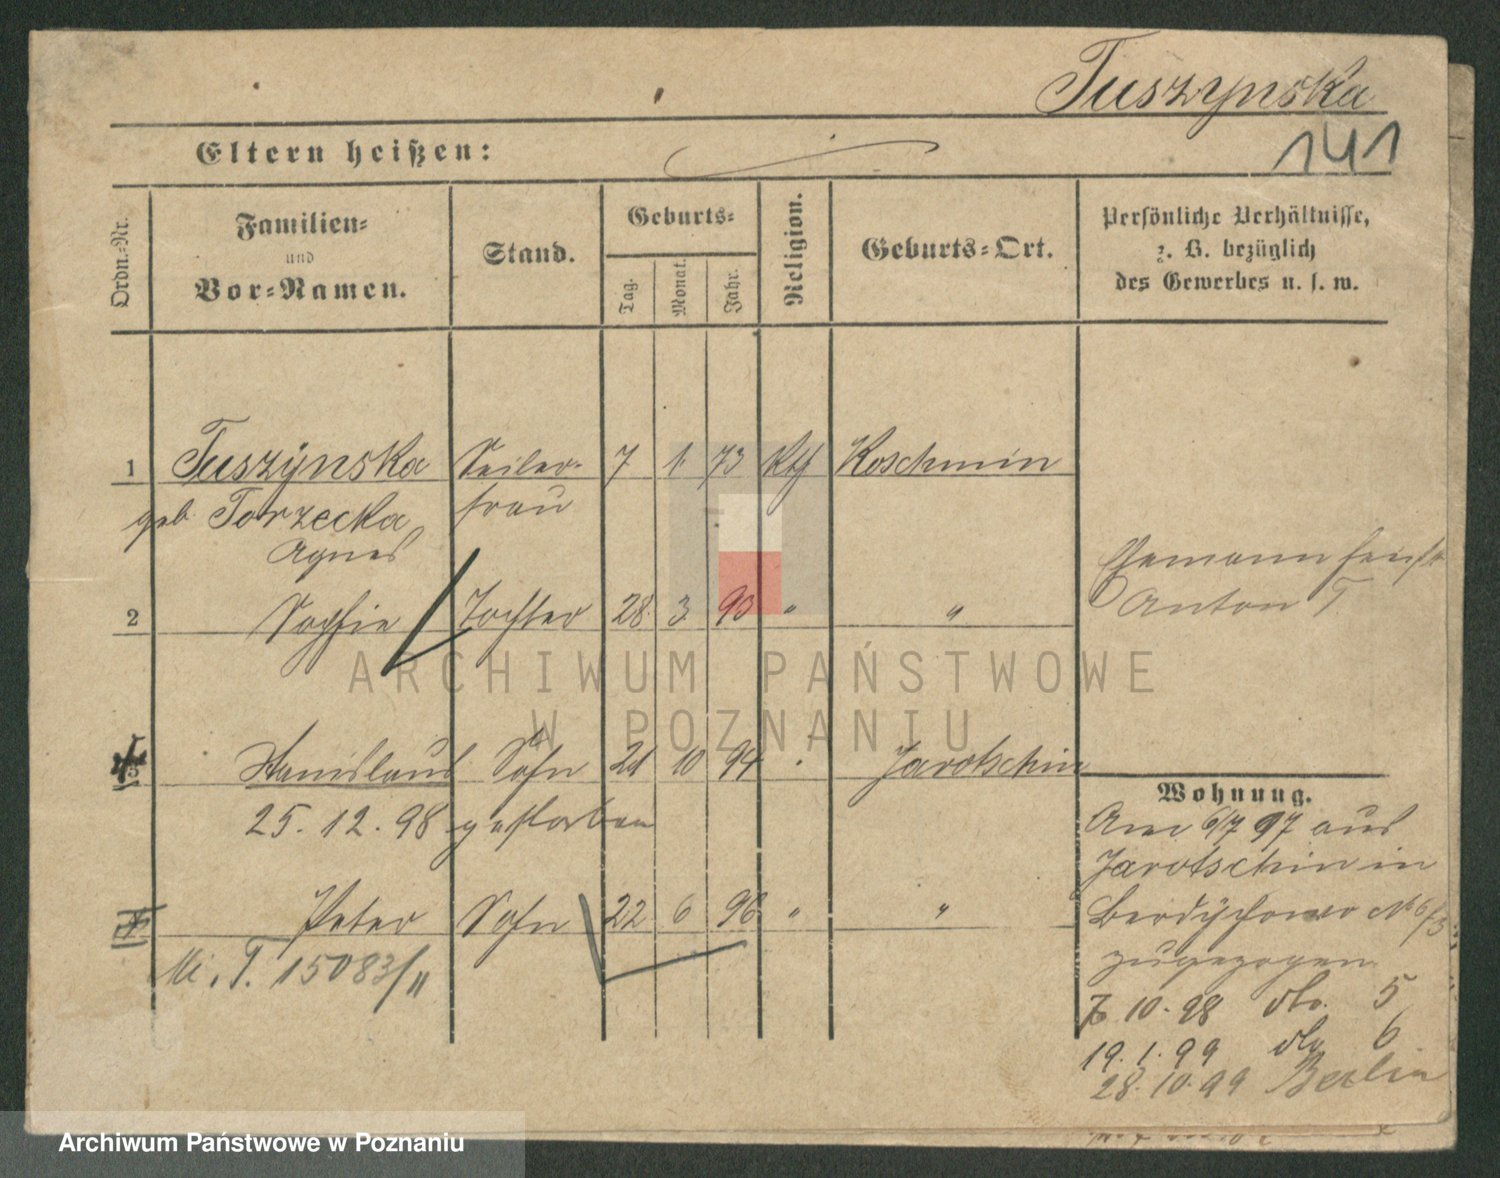 Tuszynska
141
Eltern heißen:
Ordn.-Nr.
Familien-
und
Vor-Namen.
Stand.
Geburts-
Tag.
Monat.
Jahr.
Religion.
Geburts-Ort.
Persönliche Verhältnisse,
z. B. bezüglich
des Gewerbes u. s. w.
1 Tuszynska Seiler- 7 1. 73 Kth Koschmin
geb. Torzecka frau
Agnes
Ehemann heißt
Anton T
2 Sophie Tochter 28. 3. 93 " "
ARCHIWUM PAŃSTWOWE
W POZNANIU
3 Stanislaus Sohn 21 10 94 " Jarotschin
25. 12. 98 gestorben
Wohnung.
Am 6/7 97 aus
Jarotschin in
Berdychowo No 6/3
zugezogen
4 Peter Sohn 22 6 96 " "
M. T. 15083/11
7. 10. 98 do. 5
19. 1. 99 do 6
28. 10. 99 Berlin
Archiwum Państwowe w Poznaniu